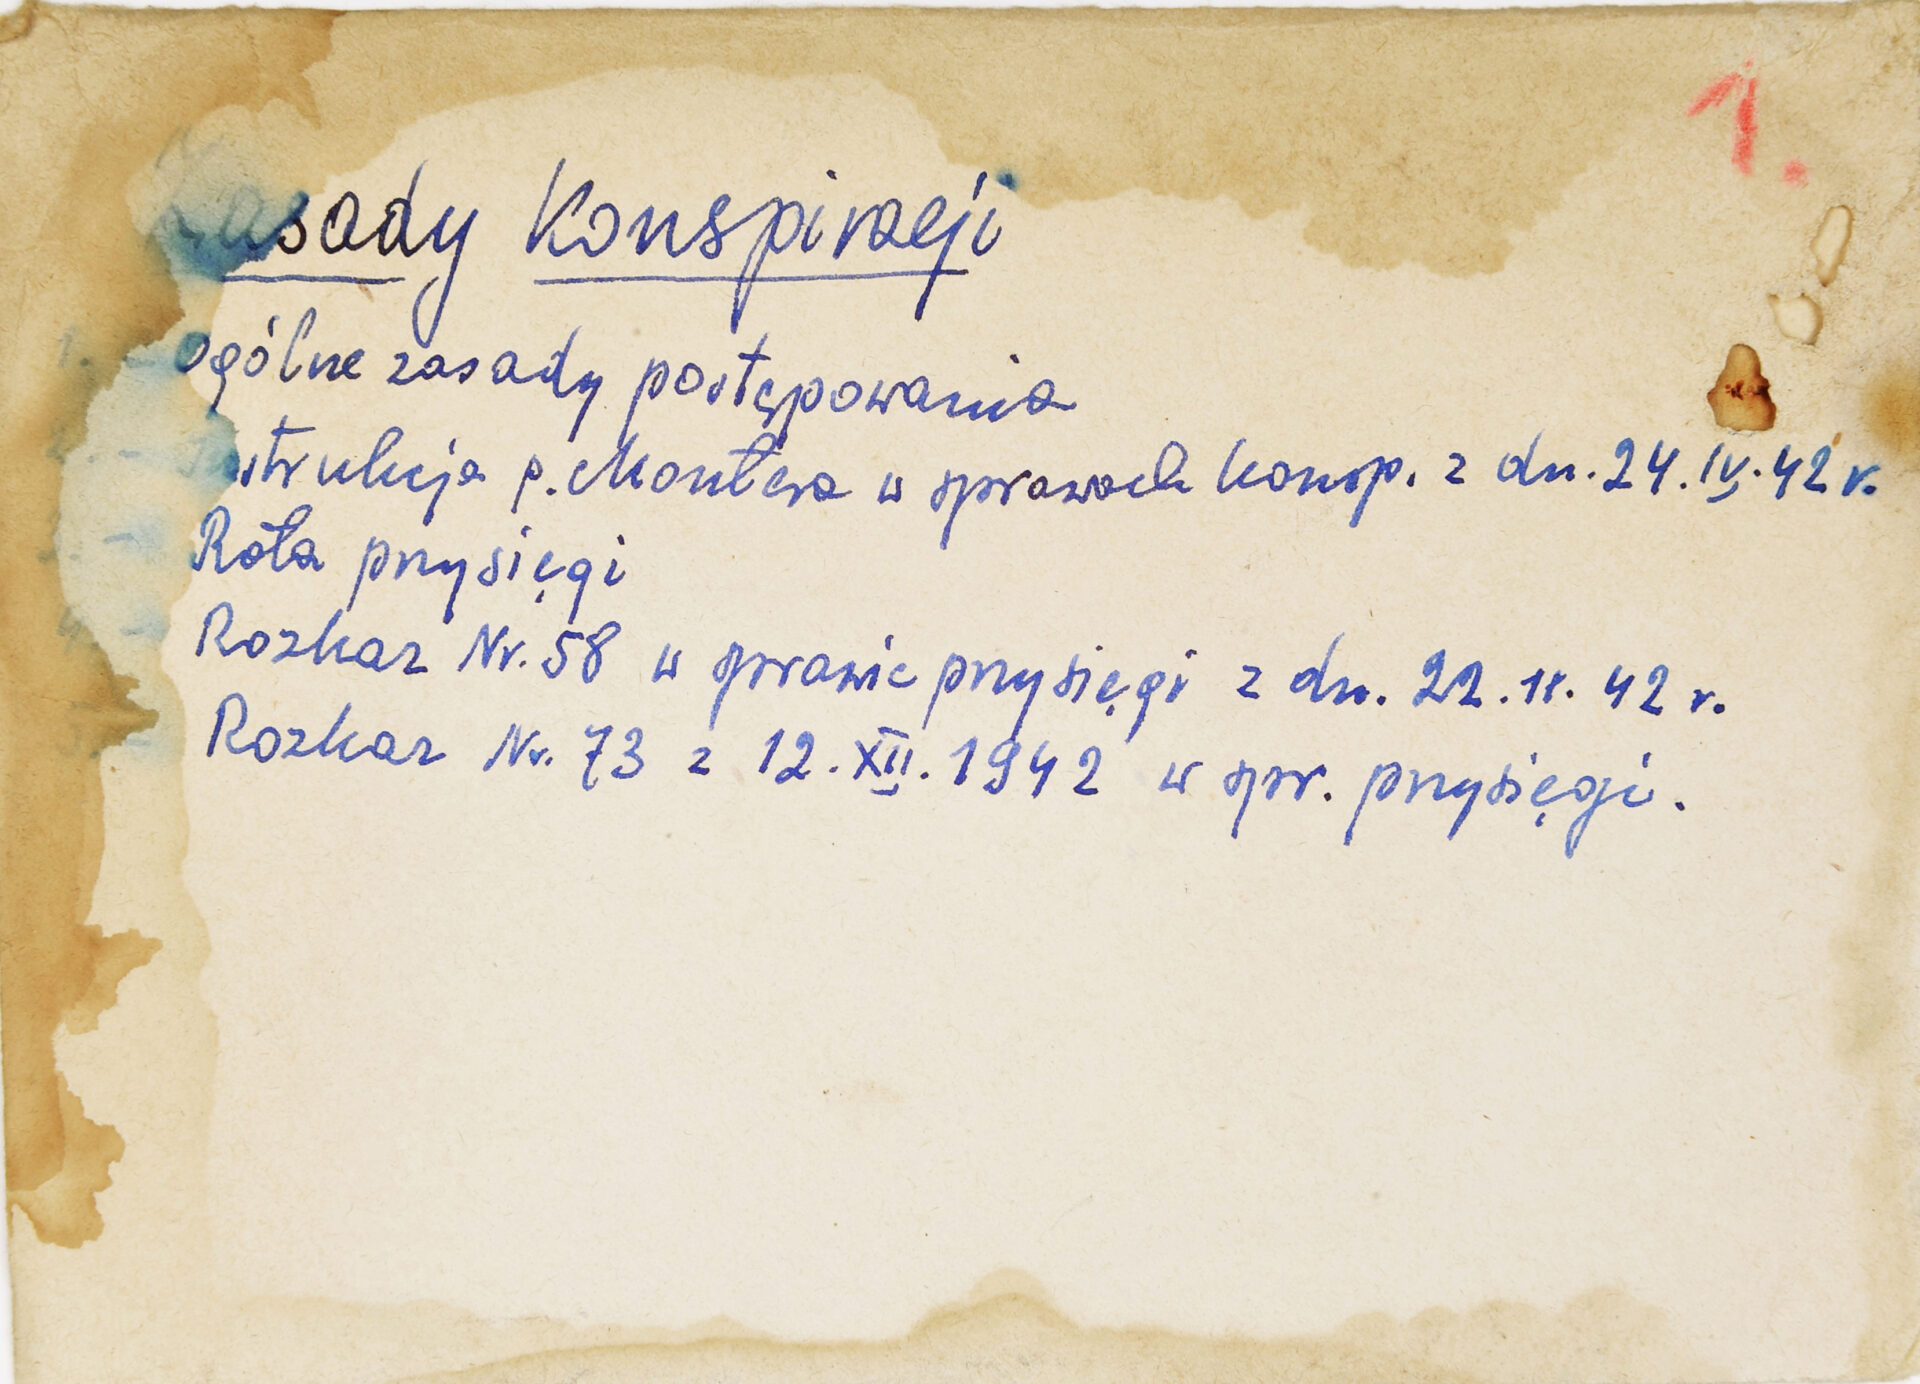 1.
Zasady Konspiracji
1. - Ogólne zasady postępowania
2. - Instrukcja p. Montera w sprawach konsp. z dn. 24.IV.42 r.
3. - Rota przysięgi
4. - Rozkaz Nr. 58 w sprawie przysięgi z dn. 22.II.42 r.
5. - Rozkaz Nr. 73 z 12.XII.1942 w spr. przysięgi.